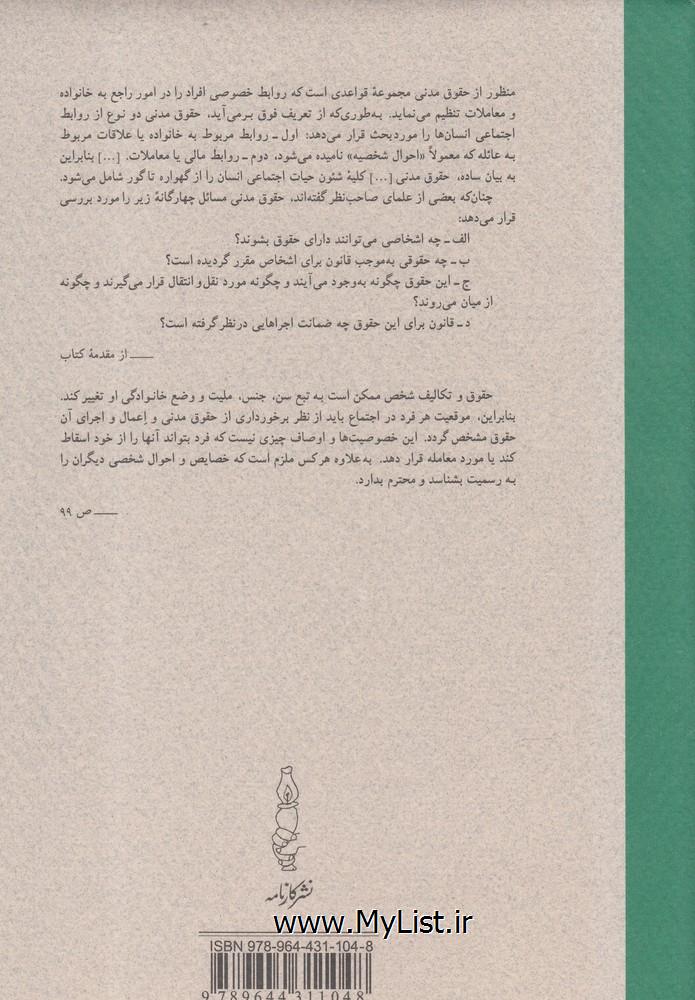 منظور از حقوق مدنی مجموعهٔ قواعدی است که روابط خصوصی افراد را در امور راجع به خانواده
و معاملات تنظیم می‌نماید. به‌طوری‌که از تعریف فوق برمی‌آید، حقوق مدنی دو نوع از روابط
اجتماعی انسان‌ها را موردبحث قرار می‌دهد: اول ـ روابط مربوط به خانواده یا علاقات مربوط
به عائله که معمولاً «احوال شخصیه» نامیده می‌شود، دوم ـ روابط مالی یا معاملات. [...] بنابراین
به بیان ساده، حقوق مدنی [...] کلیهٔ شئون حیات اجتماعی انسان را از گهواره تا گور شامل می‌شود.
چنان‌که بعضی از علمای صاحب‌نظر گفته‌اند، حقوق مدنی مسائل چهارگانهٔ زیر را مورد بررسی
قرار می‌دهد:
الف ـ چه اشخاصی می‌توانند دارای حقوق بشوند؟
ب ـ چه حقوقی به‌موجب قانون برای اشخاص مقرر گردیده است؟
ج ـ این حقوق چگونه به‌وجود می‌آیند و چگونه مورد نقل‌و‌انتقال قرار می‌گیرند و چگونه
از میان می‌روند؟
د ـ قانون برای این حقوق چه ضمانت اجراهایی درنظر گرفته است؟
ــــ از مقدمهٔ کتاب
حقوق و تکالیف شخص ممکن است به تبع سن، جنس، ملیت و وضع خانوادگی او تغییر کند.
بنابراین، موقعیت هر فرد در اجتماع باید از نظر برخورداری از حقوق مدنی و اِعمال و اجرای آن
حقوق مشخص گردد. این خصوصیت‌ها و اوصاف چیزی نیست که فرد بتواند آنها را از خود اسقاط
کند یا مورد معامله قرار دهد. به‌علاوه هرکس ملزم است که خصایص و احوال شخصی دیگران را
به رسمیت بشناسد و محترم بدارد.
ــــ ص ۹۹
نشر کارنامه
www.MyList.ir
ISBN 978-964-431-104-8
9 789644 311048